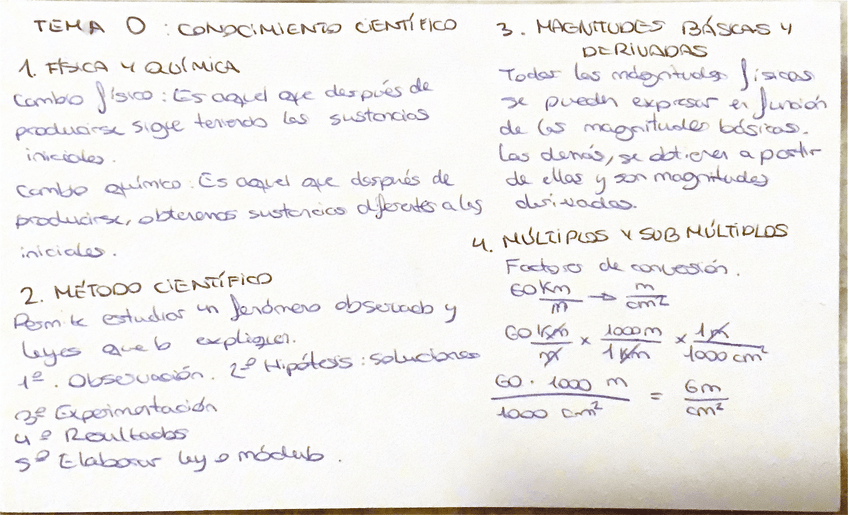 TEMA 0 : CONOCIMIENTO CIENTÍFICO
1. FÍSICA Y QUÍMICA
Cambio físico : Es aquel que después de
producirse sigue teniendo las sustancias
iniciales.
Cambio químico : Es aquel que después de
producirse, obtenemos sustancias diferentes a las
iniciales.
2. MÉTODO CIENTÍFICO
Permite estudiar un fenómeno observado y
leyes que lo expliquen.
1º. Observación. 2º Hipótesis : soluciones
3º Experimentación
4º Resultados
5º Elaborar ley o módulo.
3. MAGNITUDES BÁSICAS Y
DERIVADAS
Todas las magnitudes físicas
se pueden expresar en función
de las magnitudes básicas.
Las demás, se obtienen a partir
de ellas y son magnitudes
derivadas.
4. MÚLTIPLOS Y SUBMÚLTIPLOS
Factores de conversión.
60 Km / m → m / cm²
60 Km / m × 1000 m / 1 Km × 1 m / 1000 cm²
60 · 1000 m / 1000 cm² = 6 m / cm²